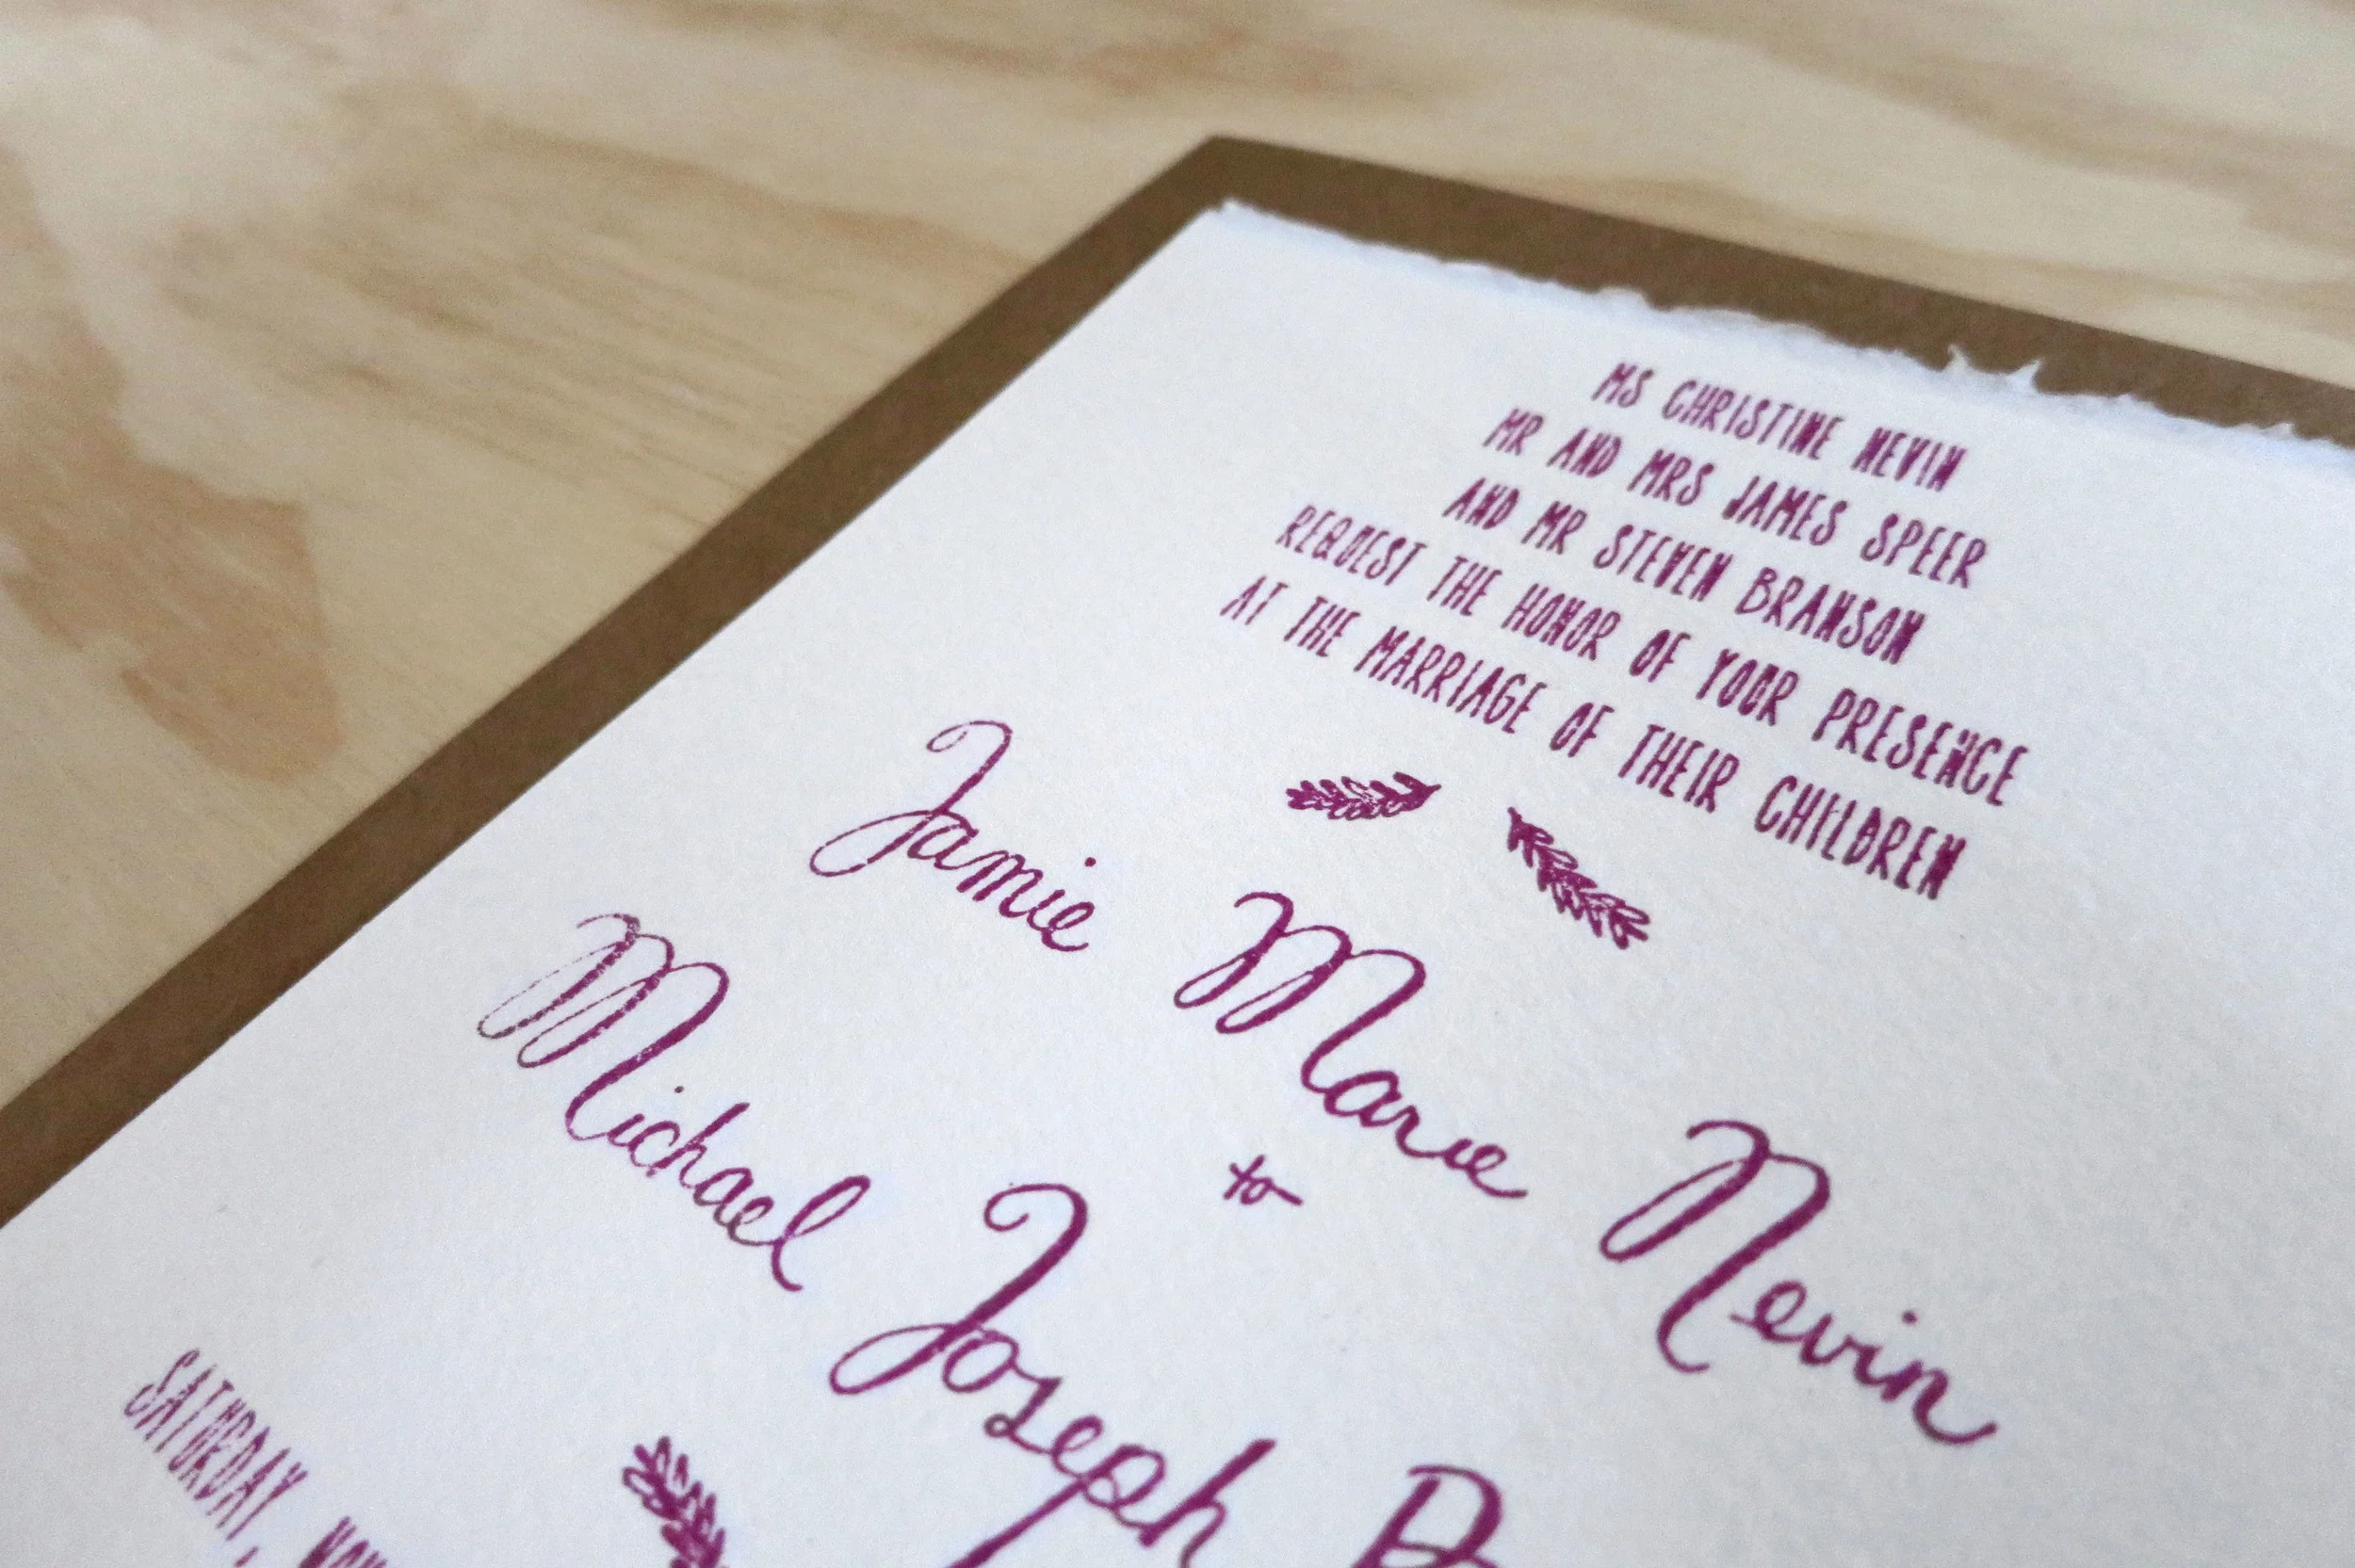 MS CHRISTINE NEVIN
MR AND MRS JAMES SPEER
AND MR STEVEN BRANSON
REQUEST THE HONOR OF YOUR PRESENCE
AT THE MARRIAGE OF THEIR CHILDREN
Jamie Marie Nevin
to
Michael Joseph
SATURDAY,